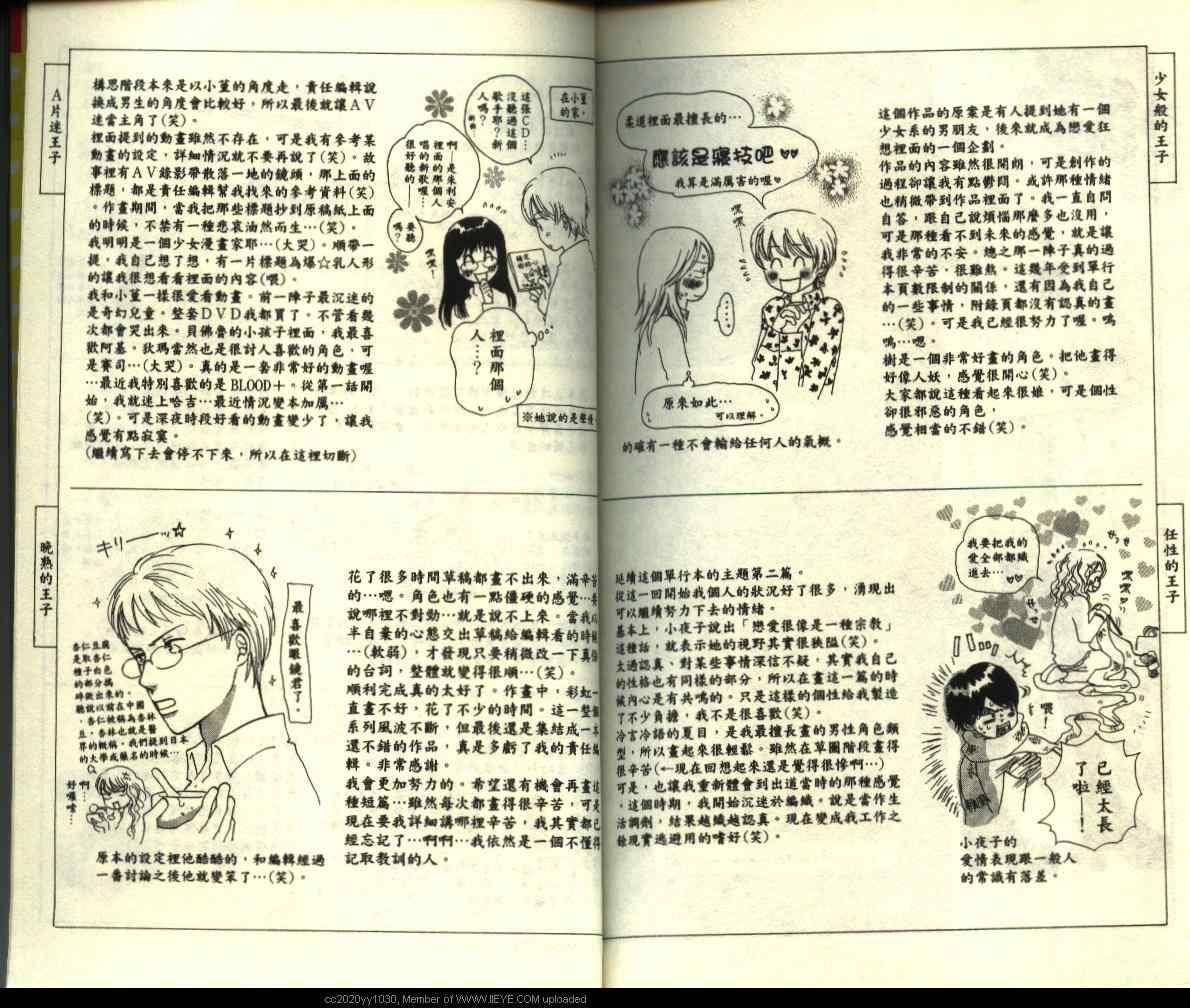 少女般的王子
這個作品的原案是有人提到她有一個
少女系的男朋友，後來就成為戀愛狂
想裡面的一個企劃。
作品的內容雖然很開朗，可是創作的
過程卻讓我有點鬱悶。或許那種情緒
也稍微帶到作品裡面了。我一直自問
自答，跟自己說煩惱那麼多也沒用，
可是那種看不到未來的感覺，就是讓
我非常的不安。總之那一陣子真的過
得很辛苦，很難熬。這幾年受到單行
本頁數限制的關係，還有因為我自己
的一些事情，附錄頁都沒有認真的畫
…(笑)。可是我已經很努力了喔。嗚
嗚…嗯。
樹是一個非常好畫的角色。把他畫得
好像人妖，感覺很開心(笑)。
大家都說這種看起來很娘，可是個性
卻很邪惡的角色，
感覺相當的不錯(笑)。
柔道裡面最擅長的…
應該是寢技吧♥♥
我算是滿厲害的喔♥
嘿嘿——
……
原來如此…
可以理解。
的確有一種不會輸給任何人的氣概。
A片迷王子
構思階段本來是以小菫的角度走，責任編輯說
換成男生的角度會比較好，所以最後就讓AV
迷當主角了(笑)。
裡面提到的動畫雖然不存在，可是我有參考某
動畫的設定，詳細情況就不要再說了(笑)。故
事裡有AV錄影帶散落一地的鏡頭，那上面的
標題，都是責任編輯幫我找來的參考資料(笑)
。作畫期間，當我把那些標題抄到原稿紙上面
的時候，不禁有一種悲哀油然而生…(笑)。
我明明是一個少女漫畫家耶…(大哭)。順帶一
提，我自己想了想，有一片標題為爆☆乳人形
的讓我很想看看裡面的內容(喂)。
我和小菫一樣很愛看動畫。前一陣子最沉迷的
是奇幻兒童。整套DVD我都買了。不管看幾
次都會哭出來。貝佛魯的小孩子裡面，我最喜
歡阿基。狄瑪當然也是很討人喜歡的角色，可
是賽司…(大哭)。真的是一套非常好的動畫喔
…最近我特別喜歡的是BLOOD＋。從第一話開
始，我就迷上哈吉…最近情況變本加厲…
(笑)。可是深夜時段好看的動畫變少了，讓我
感覺有點寂寞。
(繼續寫下去會停不下來，所以在這裡切斷)
在小菫
的家。
這張CD…
沒聽過這個
歌手耶？新
人嗎？
啊，是朱利安
裡面的那個人
唱的新歌喔…
很好聽的——
要聽
嗎？
嘿嘿！
裡面那個
人…？
※她說的是聲優
任性的王子
我要把我的
愛全部都織
進去…♥♥
嘿嘿
喂！
已經太長
了啦——！
小夜子的
愛情表現跟一般人
的常識有落差。
延續這個單行本的主題第二篇。
從這一回開始我個人的狀況好了很多，湧現出
可以繼續努力下去的情緒。
基本上，小夜子說出「戀愛很像是一種宗教」
這種話，就表示她的視野其實很狹隘(笑)。
太過認真、對某些事情深信不疑，其實我自己
的性格也有同樣的部分，所以在畫這一篇的時
候內心是有共鳴的。只是這樣的個性給我製造
了不少負擔，我不是很喜歡(笑)。
冷言冷語的夏目，是我最擅長畫的男性角色類
型，所以畫起來很輕鬆。雖然在草圖階段畫得
很辛苦(←現在回想起來還是覺得很慘啊…)
可是，也讓我重新體會到出道當時的那種感覺
。這個時期，我開始沉迷於編織。說是當作生
活調劑，結果越織越認真。現在變成我工作之
餘現實逃避用的嗜好(笑)。
晚熟的王子
花了很多時間草稿都畫不出來，滿辛苦
的…嗯。角色也有一點僵硬的感覺…
說哪裡不對勁…就是說不上來。當我以
半自棄的心態交出草稿給編輯看的時候
…(軟弱)，才發現只要稍微改一下真
的台詞，整體就變得很順…(笑)。
順利完成真的太好了。作畫中，彩虹一
直畫不好，花了不少的時間。這一整個
系列風波不斷，但最後還是集結成一本
還不錯的作品，真是多虧了我的責任編
輯。非常感謝。
我會更加努力的。希望還有機會再畫這
種短篇…雖然每次都畫得很辛苦，可是
現在要我詳細講哪裡辛苦，我其實都已
經忘記了…啊啊…我依然是一個不懂得
記取教訓的人。
キリ——☆
最喜歡眼鏡君了。
杏仁豆腐
是取杏仁
種子白色
的部分搗
碎做出來的。
聽說以前在中國
，杏仁被稱為杏林
豆，杏林也就是醫
界的概稱。我們提到日本
的大學或縣名的時候…
啊…
好囉嗦…
原本的設定裡他酷酷的，和編輯經過
一番討論之後他就變笨了…(笑)。
cc2020yy1030, Member of WWW.IIEYE.COM uploaded